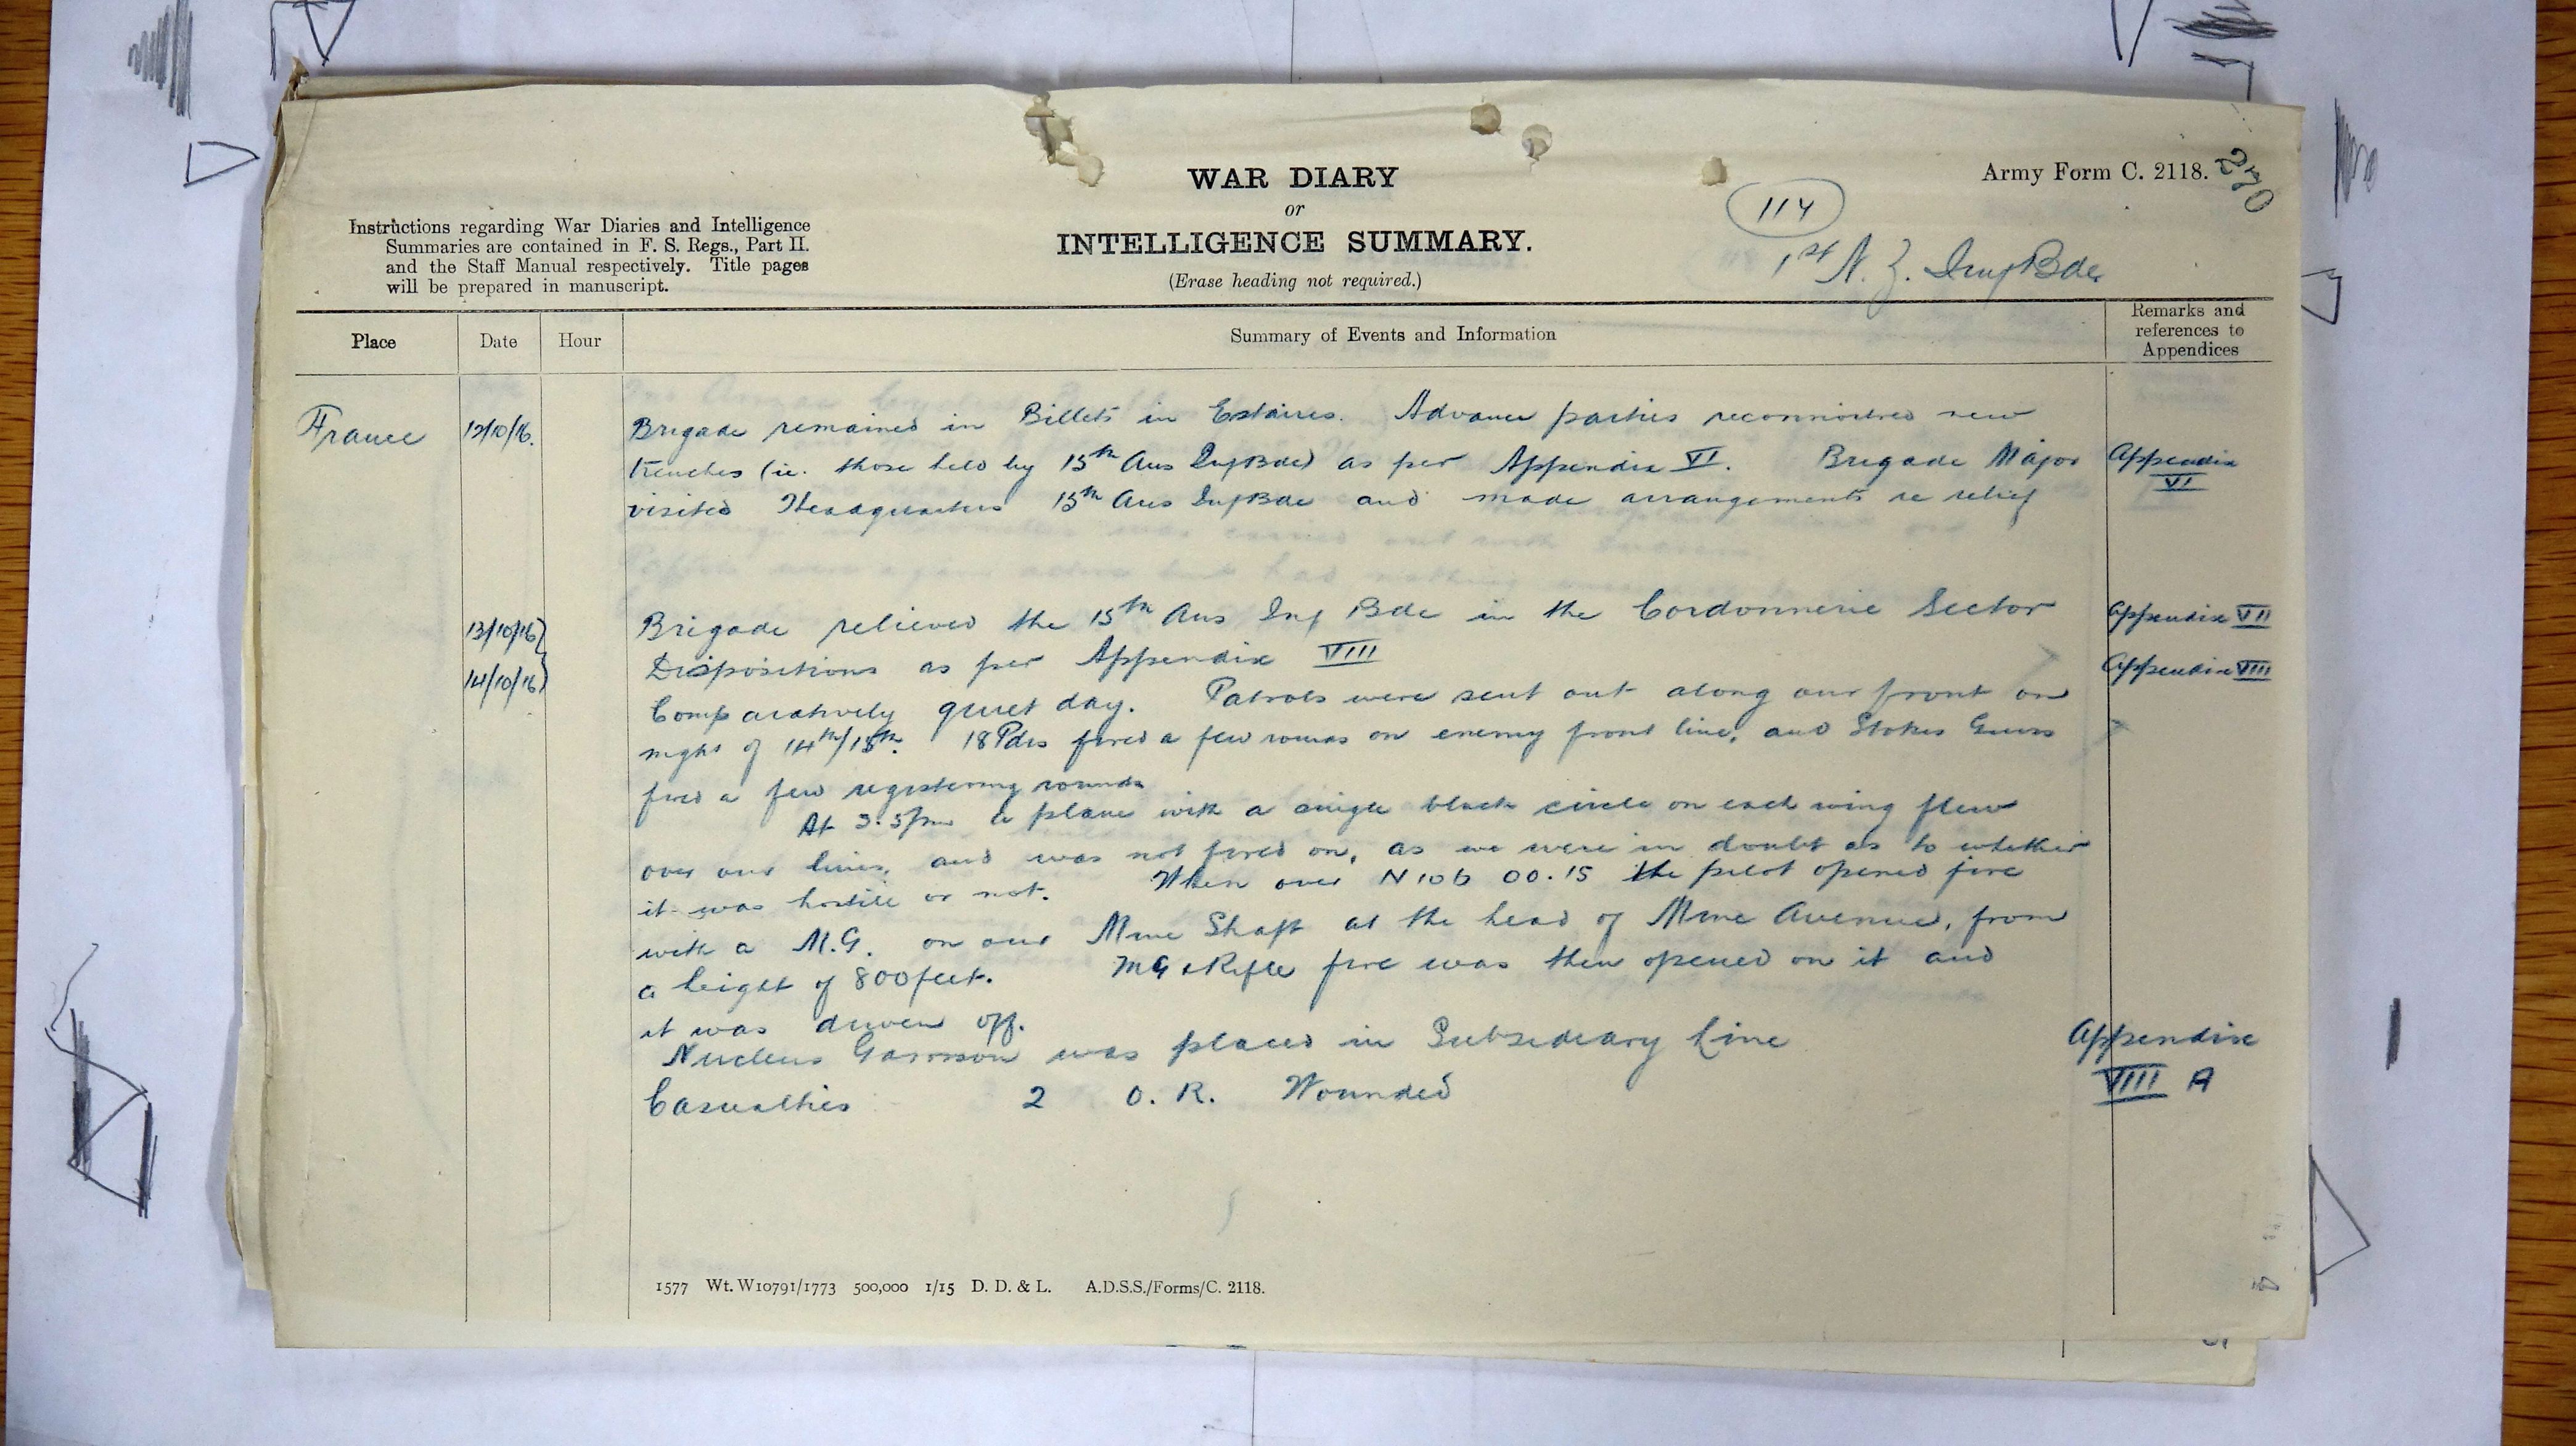 WAR DIARY
or
INTELLIGENCE SUMMARY.
(Erase heading not required.)
Army Form C. 2118.
270
114
1st N. Z. Inf Bde
Instructions regarding War Diaries and Intelligence
Summaries are contained in F. S. Regs., Part II.
and the Staff Manual respectively. Title pages
will be prepared in manuscript.
Place Date Hour Summary of Events and Information Remarks and references to Appendices
France 12/10/16. Brigade remained in Billets in Estaires. Advance parties reconnoitred new
trenches (ie. those held by 15th Aus Inf Bde) as per Appendix VI. Brigade Major Appendix VI
visited Headquarters 15th Aus Inf Bde and made arrangements re relief
13/10/16} Brigade relieved the 15th Aus Inf Bde in the Cordonnerie Sector Appendix VII
14/10/16} Dispositions as per Appendix VIII Appendix VIII
Comparatively quiet day. Patrols were sent out along our front on
night of 14th/15th. 18 Pdrs fired a few rounds on enemy front line, and Stokes Guns
fired a few registering rounds
At 3.5pm a plane with a single black circle on each wing flew
over our lines, and was not fired on, as we were in doubt as to whether
it was hostile or not. When over N10b 00.15 the pilot opened fire
with a M.G. on our Mine Shaft at the head of Mine Avenue, from
a height of 800 feet. MG & Rifle fire was then opened on it and
it was driven off.
Nucleus Garrison was placed in Subsidiary Line Appendix
Casualties 2 O. R. Wounded VIII A
1577 Wt. W10791/1773 500,000 1/15 D. D. & L. A.D.S.S./Forms/C. 2118.